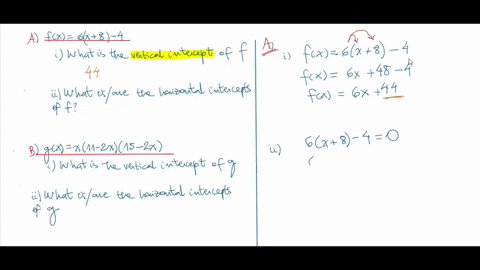 A) f(x) = 6(x+8)-4
i) What is the vertical intercept of f
44
ii) What is/are the horizontal intercepts
of f?
B) g(x) = x(11-2x)(15-2x)
i) What is the vertical intercept of g
ii) What is/are the horizontal intercepts
of g
A)
i) f(x) = 6(x+8) - 4
f(x) = 6x + 48 - 4
f(x) = 6x + 44
ii) 6(x+8) - 4 = 0